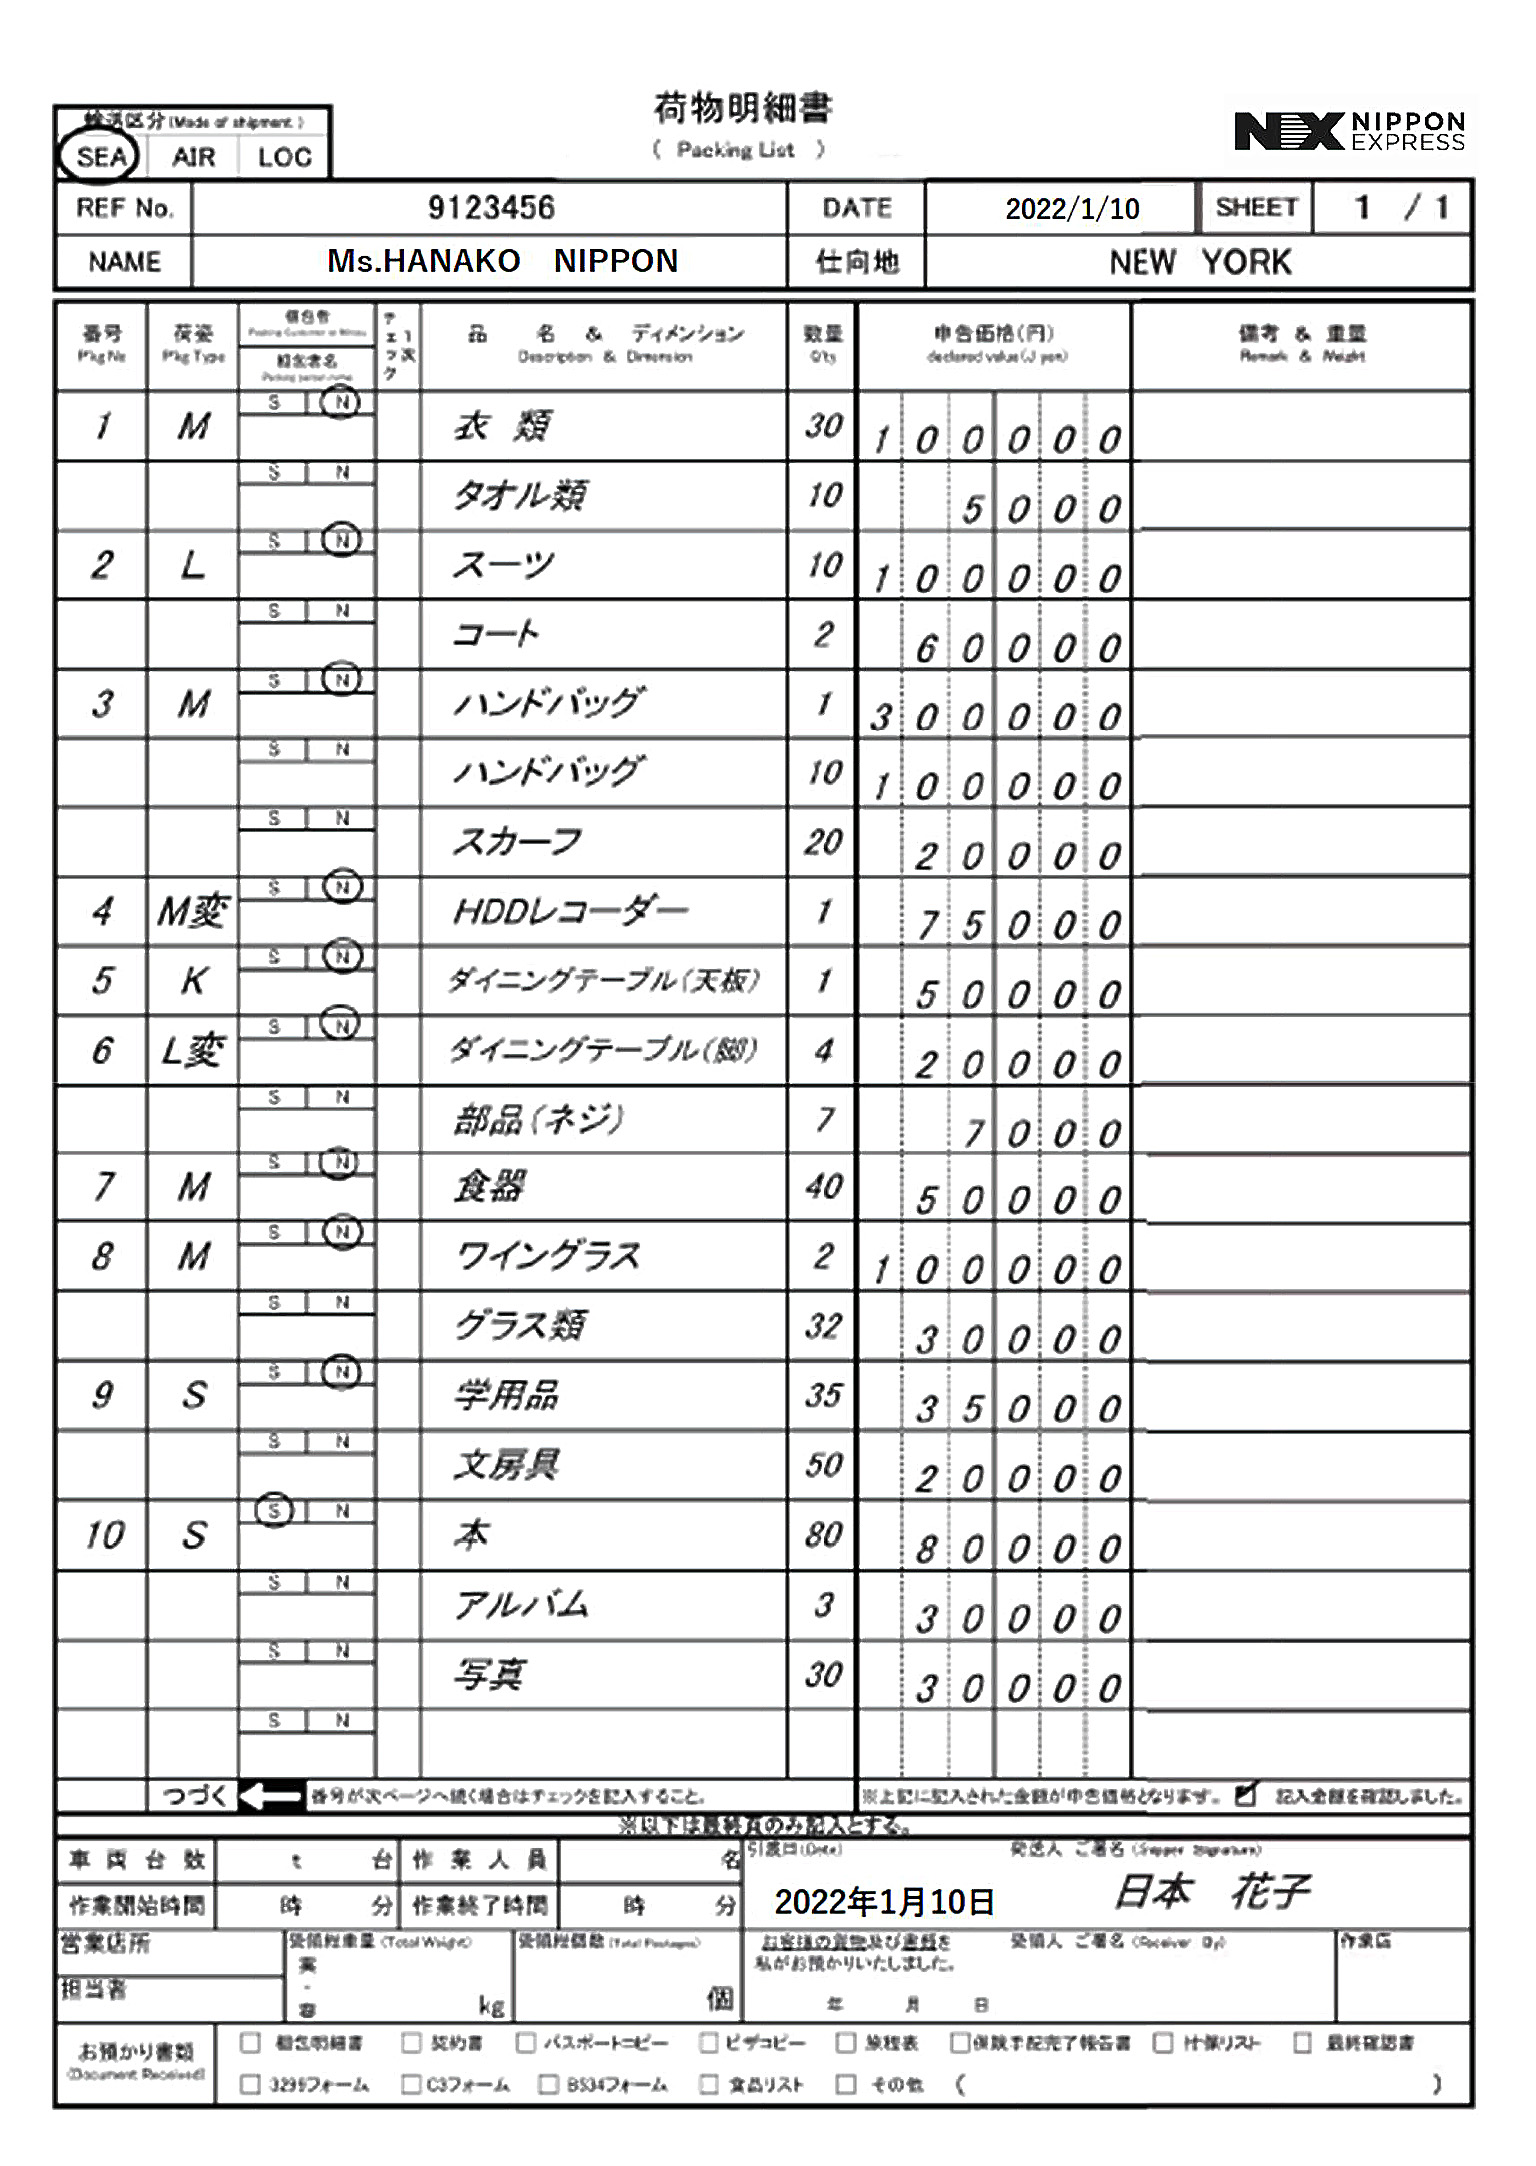 荷物明細書
( Packing List )
輸送区分(Mode of shipment)
SEA AIR LOC
NIPPON EXPRESS
REF No. 9123456 DATE 2022/1/10 SHEET 1 / 1
NAME Ms.HANAKO NIPPON 仕向地 NEW YORK
番号 荷姿 梱包者 チェック 1次 品 名 & ディメンション 数量 申告価格(円) 備考 & 重量
Pkg No Pkg Type 担当者名 Description & Dimension Q'ty declared value(J yen) Remark & Weight
1 M S N 衣 類 30 100000
S N タオル類 10 5000
2 L S N スーツ 10 100000
S N コート 2 60000
3 M S N ハンドバッグ 1 300000
S N ハンドバッグ 10 100000
S N スカーフ 20 20000
4 M変 S N HDDレコーダー 1 75000
5 K S N ダイニングテーブル(天板) 1 50000
6 L変 S N ダイニングテーブル(脚) 4 20000
S N 部品(ネジ) 7 7000
7 M S N 食器 40 50000
8 M S N ワイングラス 2 100000
S N グラス類 32 30000
9 S S N 学用品 35 35000
S N 文房具 50 20000
10 S S N 本 80 80000
S N アルバム 3 30000
S N 写真 30 30000
S N
つづく 番号が次ページへ続く場合はチェックを記入すること。 ※上記に記入された金額が申告価格となります。 記入金額を確認しました。
※以下は最終頁のみ記入とする。
車両台数 t 台 作業人員 名 引渡日(Date) 発送人 ご署名
作業開始時間 時 分 作業終了時間 時 分 2022年1月10日 日本 花子
営業店所 受領総重量(Total Weight) 受領総個数(Total Packages) お客様の貨物及び書類を 受領人 ご署名(Receiver By) 作業店
担当者 実・容 kg 個 私がお預かりいたしました。
年 月 日
お預かり書類 梱包明細書 契約書 パスポートコピー ビザコピー 旅程表 保険手配完了報告書 付保リスト 最終確認書
(Document Received) 3299フォーム C3フォーム B534フォーム 食品リスト その他 ( )